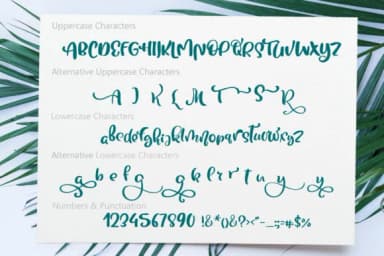 Uppercase Characters
ABCDEFGHIJKLMNOPQRSTUVWXYZ
Alternative Uppercase Characters
A J K L M T S R
Lowercase Characters
abcdefghijklmnopqrstuvwxyz
Alternative Lowercase Characters
a b e f g g k l r t u y y
Numbers & Punctuation
1234567890 !&*()&?><"-_:;=#$%